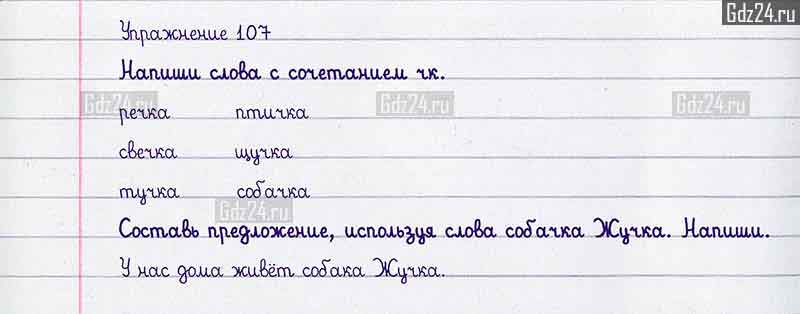 Gdz24.ru
Упражнение 107
Напиши слова с сочетанием чк.
Gdz24.ru Gdz24.ru Gdz24.ru
речка птичка
свечка щучка
тучка собачка
Gdz24.ru
Составь предложение, используя слова собачка Жучка. Напиши.
У нас дома живёт собака Жучка.